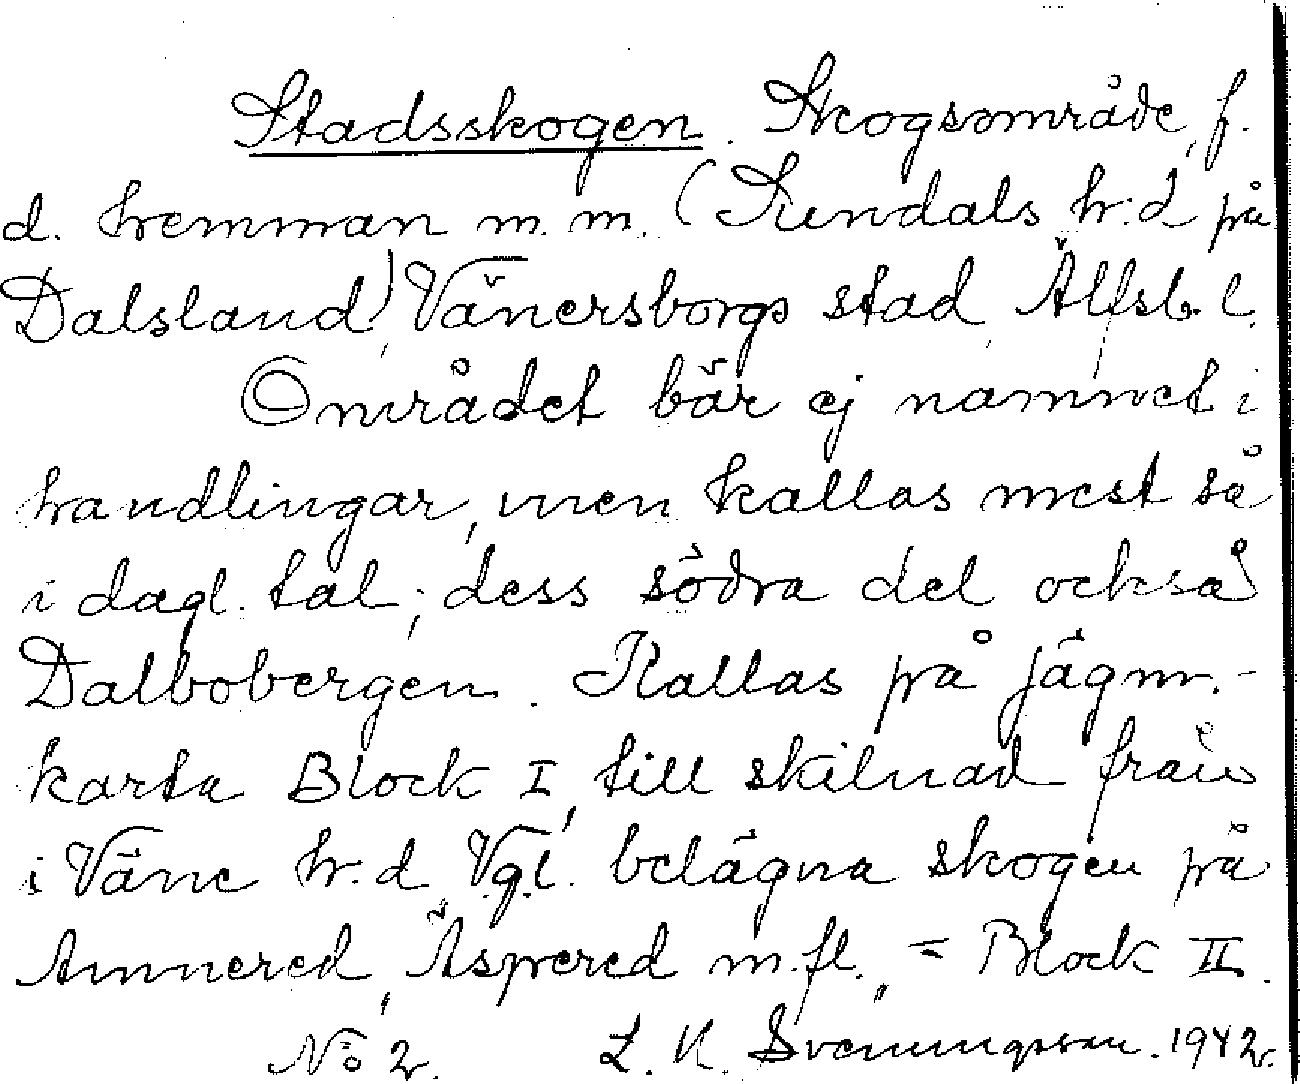 Stadsskogen. Skogsområde, f.
d. hemman m. m. (Sundals h:d på
Dalsland), Vänersborgs stad, Älfsb. l.
Området bär ej namnet i
handlingar, men kallas mest så
i dagl. tal; dess södra del också
Dalbobergen. Kallas på jägm.-
karta Block I, till skilnad från
i Väne h:d Vgl. belägna skogen på
Onnered, Äspered m. fl., = Block II.
No 2. L. K. Svenungsson. 1942.